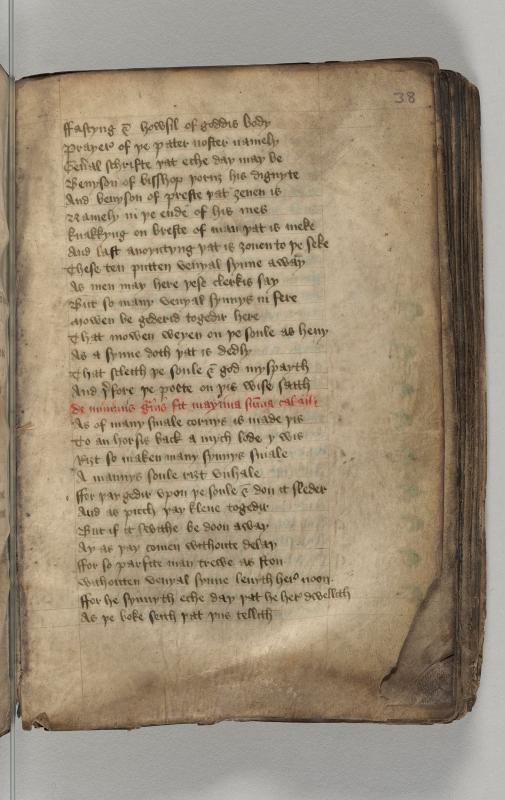 38
ffastyng & howsil of goddis body
Prayer of þe pater noster namely
Gen̄al schrifte þat eche day may be
Benyson of bisshop þoruȝ his dignyte
And benyson of preste þat ȝeuen is
Namely in þe ende of his mes
knakkyng on breste of man þat is meke
And last anoyntyng þat is ȝouen to þe seke
These ten putten venyal synne away
As men may here þese clerkis say
But so many venyal synnys in fere
mowen be gederid togedir here
That mowen weyen on þe soule as heuy
As a synne doth þat is dedly
That sleith þe soule & god myspayth
And þfore þe poete on þis wise saith
de minimis gnis fit maxima sūma caballi
As of many smale cornys is made þis
To an horsis back a mych lode y wis
Riȝt so maken many synnys smale
A mannys soule riȝt vnhale
ffor þay gedir vpon þe soule & don it sleder
And as picch þay kleue togedir
But if it swithe be doon away
Ay as þay comen withoute delay
ffor so parfite man trewe as ston
withouten venyal synne leuyth her noon
ffor he synnyth eche day þat he her dwellith
As þe boke seith þat þus tellith